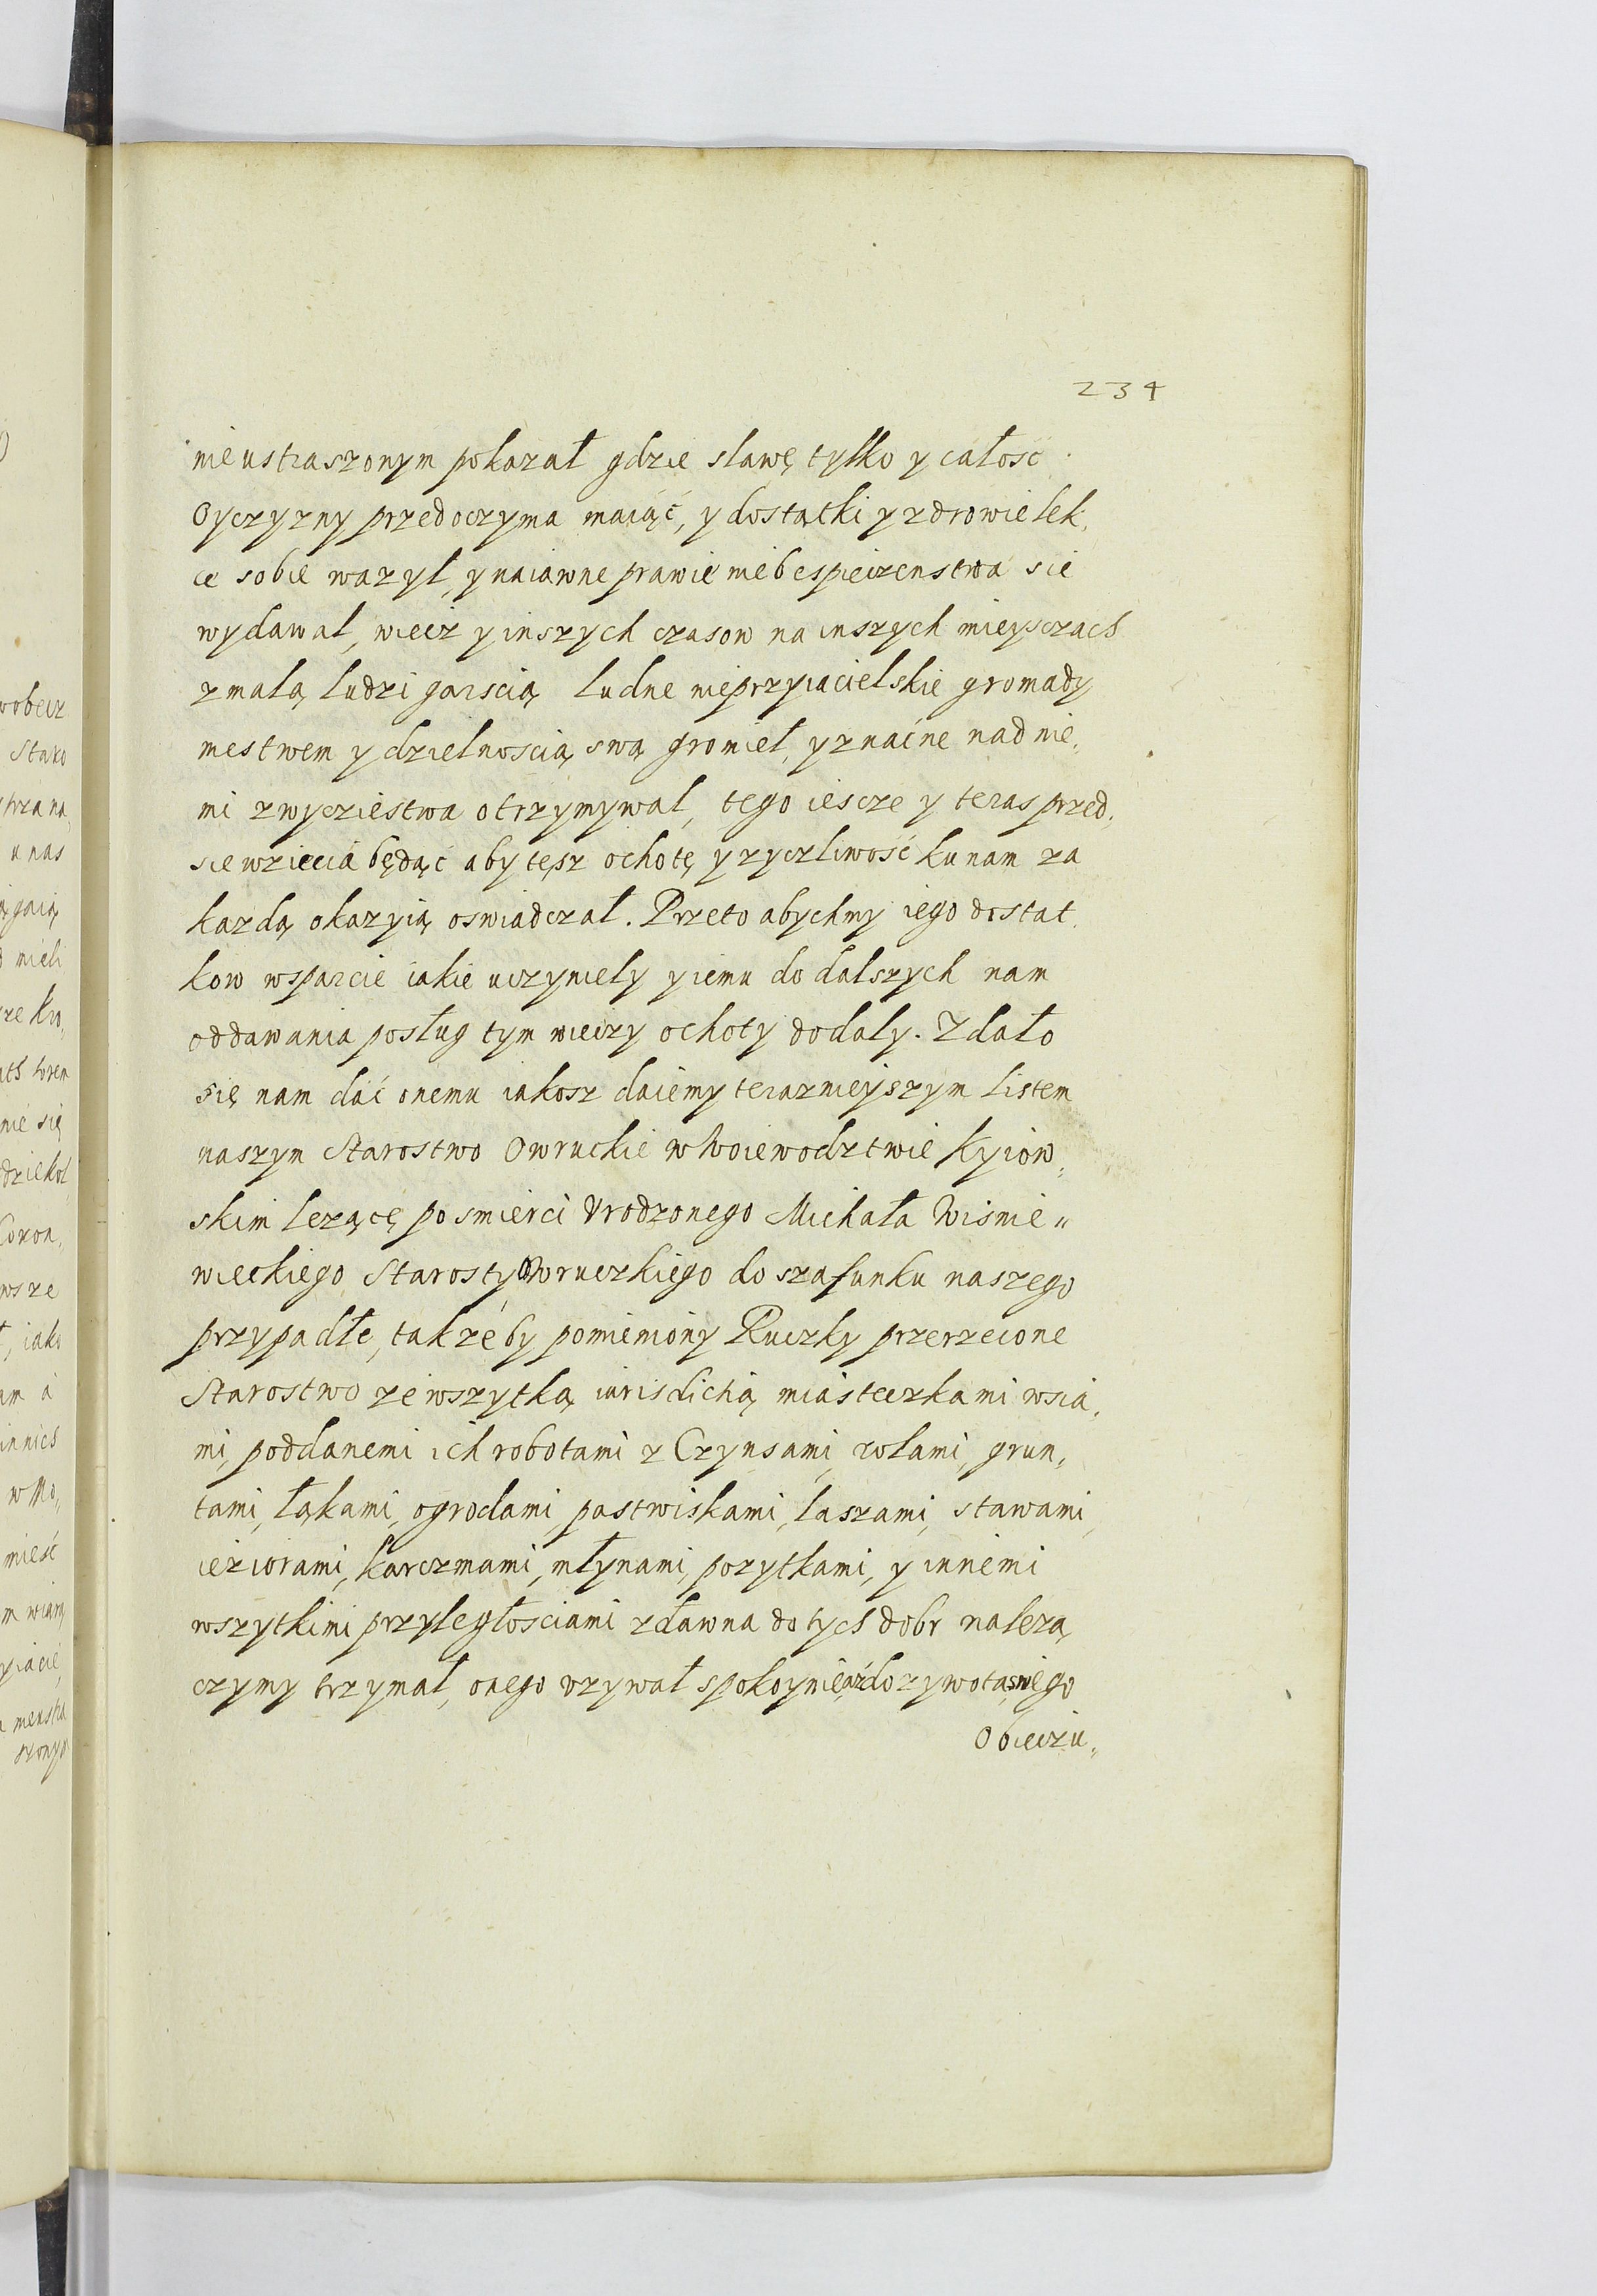 234
nieustraszonym pokazał gdzie sławę tylko y całość
Oyczyzny przedoczyma maiąć, y dostatki y zdrowie lek,
ce sobie wazył, y naiawne prawie niebespieczenstwa sie
wydawal, wiecz y inszych czasow na inszych mieysczach
z małą ludzi garscią ludne nieprzyiacielskie gromady
mestwem y dzielnoscią swą gromieł, y znaćne nad nie,
mi zwyciestwa otrzymywal, tego iescze y teras przed,
siewziecia będąć aby tęsz ochotę y zyczliwość ku nam za
kazdą okazyią oswiadczał. Przeto abychmy iego dostat,
kow wsparcie iakie uczyniely y iemu do dalszych nam
oddawania posług tym wieczy ochoty dodaly. Zdało
się nam dać onemu iakosz daiemy terazniejszym listem
naszym Starostwo Owruckie w Woiewodztwie Kyiow,
skim lezącę po smierci Vrodzonego Michała Wisnie„
wieckiego Starosty Owruczkiego do szafunku naszego
przypadłe, takze by pomieniony Ruczky przerzecone
Starostwo ze wszytką iurisdichią miasteczkami wsia,
mi, poddanemi ich robotami z Czynsami, rolami, grun,
tami, łąkami, ogrodami, pastwiskami, laszami, stawami,
ieziorami, karczmami, młynami, pozytkami, y innemi
wszytkimi przyległosciami zdawna do tych dobr naleza,
czymy trzymał, onego vzywał spokoynie aż do zywota swego
Obieczu„
wobecz
Staro
unas
nieli
nie się
wsze
iako
innich
mieść